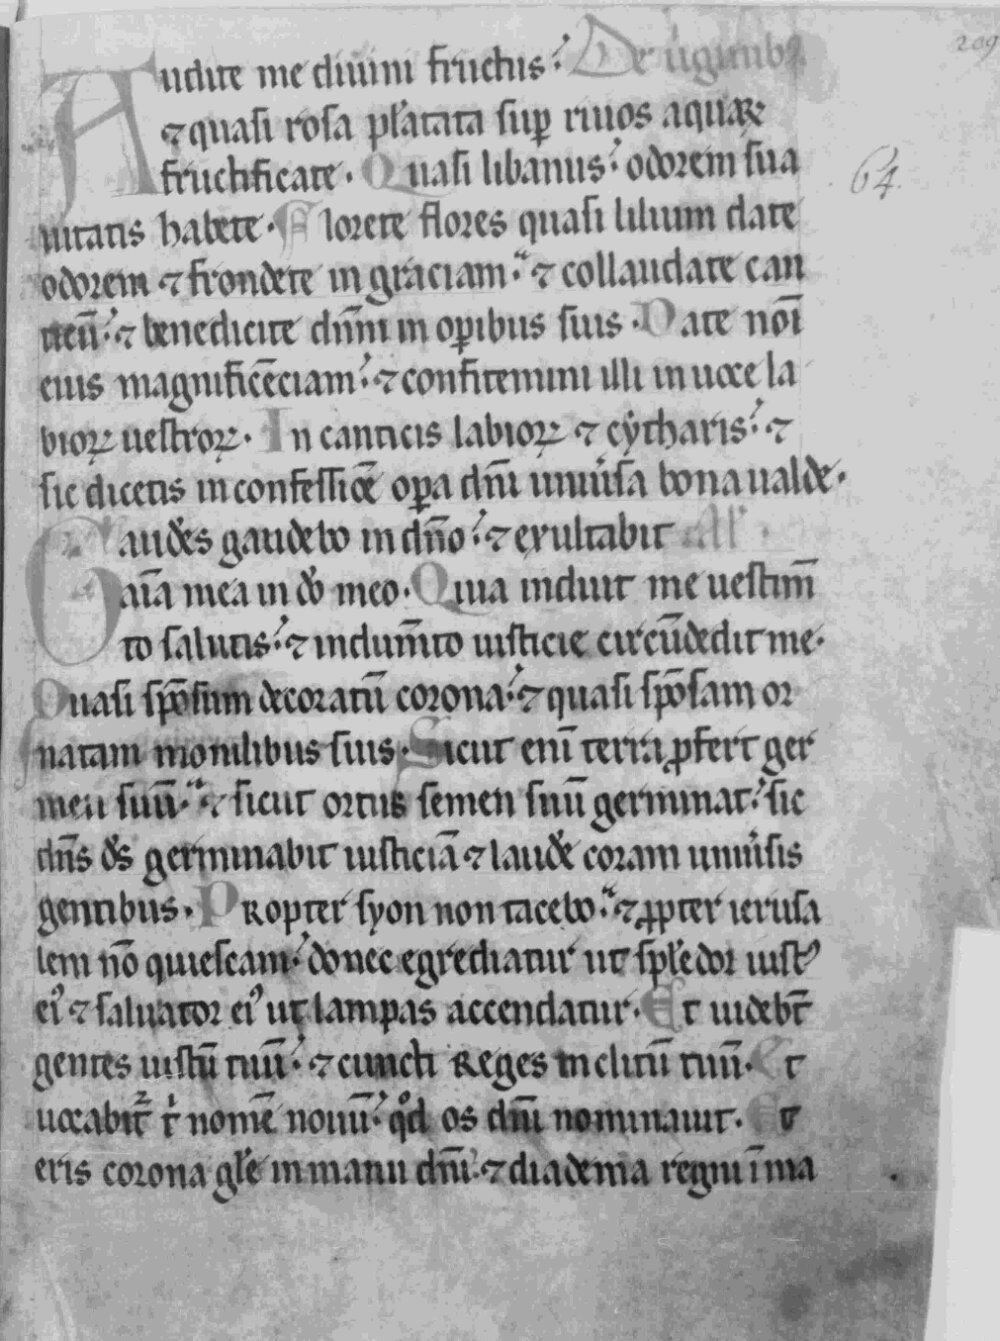 Audite me diuini fructus: De uiginibꝫ 209
⁊ quasi rosa plãtata suꝑ riuos aquaꝝ
fructificate. Quasi libanus: odorem sua 64.
uitatis habete. Florete flores quasi lilium date
odorem ⁊ frondete in graciam: ⁊ collaudate can
ticũ: ⁊ benedicite dñm in oꝑibus suis. Date noĩ
eius magnificẽciam: ⁊ confitemini illi in uoce la
bioꝝ uestroꝝ. In canticis labioꝝ ⁊ cẏtharis: ⁊
sic dicetis in confessiõe oꝑa dñi uniũsa bona ualde.
Gaudẽs gaudebo in dño: ⁊ exultabit all'.
aĩa mea in dõ meo. Quia induit me uestimñ
to salutis: ⁊ indumẽto iusticie circũdedit me.
Quasi spõsum decoratũ corona: ⁊ quasi spõsam or
natam monilibus suis. Sicut enĩ terra ꝓfert ger
men suũ: ⁊ sicut ortus semen suũ germinat: sic
dñs dẽs germinabit iusticiã ⁊ laudẽ coram uniũsis
gentibus. Propter syon non tacebo: ⁊ ꝓpter ierusa
lem nõ quiescam: donec egrediatur ut splẽdor iustꝰ
eiꝰ ⁊ saluator eiꝰ ut lampas accendatur. Et uidebt̃
gentes iustũ tuũ: ⁊ cuncti Reges inclitũ tuũ. Et
uocabit̃ t' nomẽ nouũ: qd̓ os dñi nominauit. Et
eris corona glẽ in manu dñi: ⁊ diadema regni ĩ ma